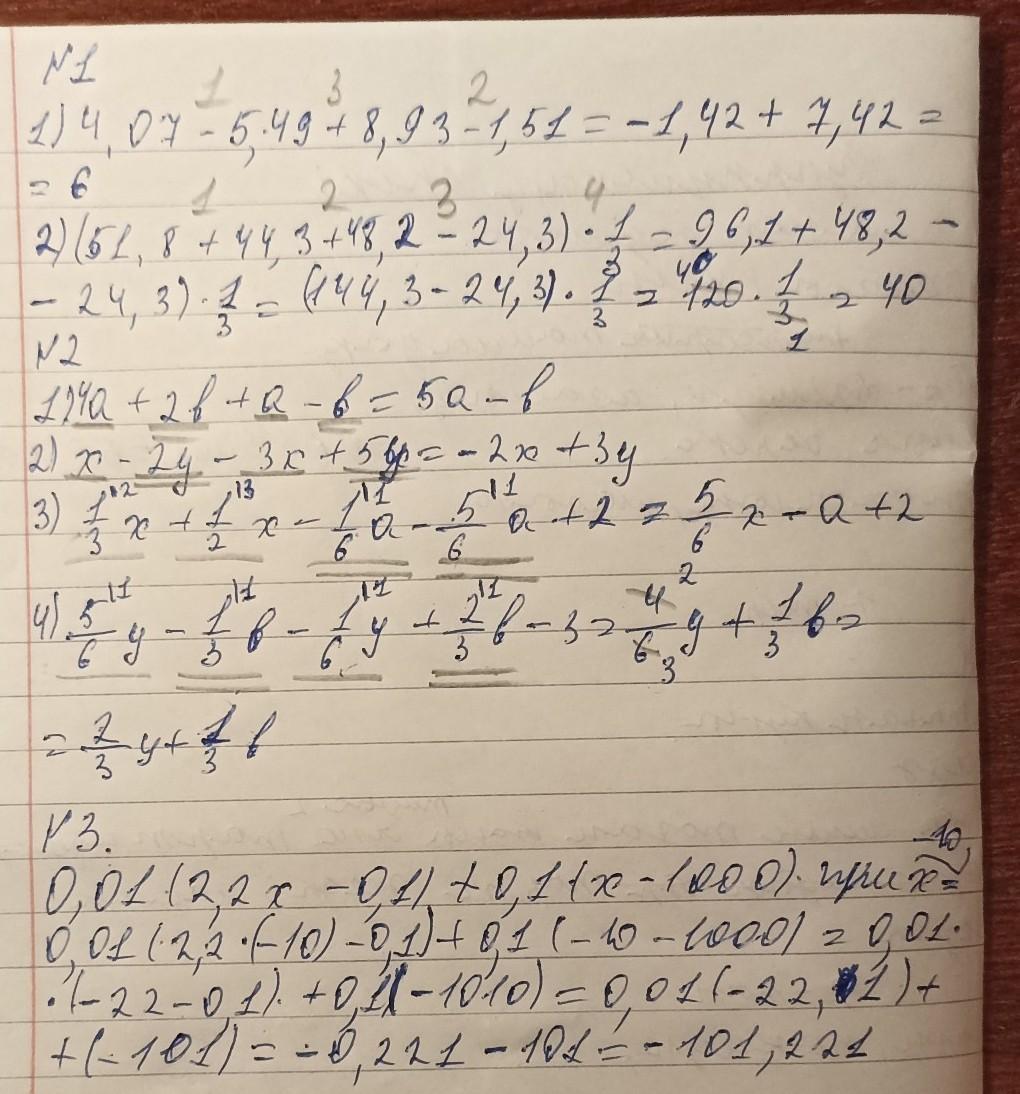 №1
1 3 2
1) 4,07 - 5,49 + 8,93 - 1,51 = -1,42 + 7,42 =
= 6
1 2 3 4
2) (51,8 + 44,3 + 48,2 - 24,3) · 1/3 = 96,1 + 48,2 -
- 24,3) · 1/3 = (144,3 - 24,3) · 1/3 = 120 40 · 1/3 1 = 40
№2
1) 4a + 2b + a - b = 5a - b
2) x - 2y - 3x + 5y = -2x + 3y
3) 1/3 \2 x + 1/2 \3 x - 1/6 \1 a - 5/6 \1 a + 2 = 5/6 x - a + 2
4) 5/6 \1 y - 1/3 \1 b - 1/6 \1 y + 2/3 \1 b - 3 = 4/6 2 3 y + 1/3 b =
= 2/3 y + 1/3 b
№3.
0,01 (2,2x - 0,1) + 0,1 (x - 1000) при x = -10
0,01 (2,2 · (-10) - 0,1) + 0,1 (-10 - 1000) = 0,01 ·
· (-22 - 0,1) + 0,1 (-1010) = 0,01 (-22,1) +
+ (-101) = -0,221 - 101 = -101,221